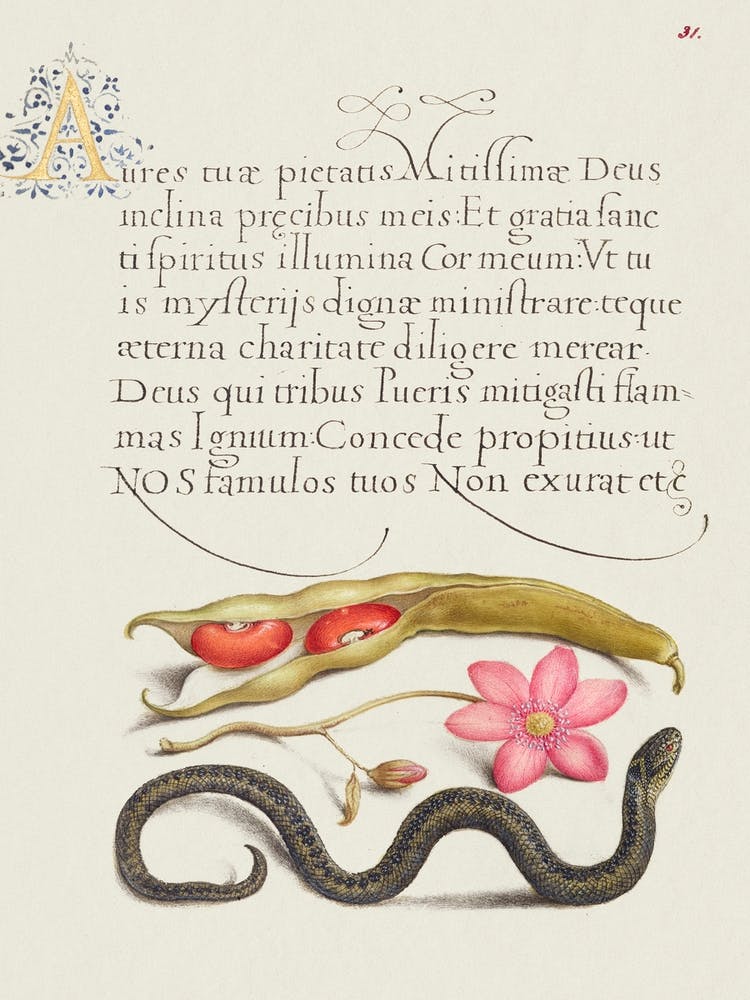 31.
Aures tuæ pietatis Mitiſſimæ Deus
inclina pręcibus meis: Et gratia ſanc
ti ſpiritus illumina Cor meum: Vt tu
is myſterijs dignæ miniſtrare: teque
æterna charitate diligere merear.
Deus qui tribus Pueris mitigaſti flam=
mas Ignium: Concede propitius: ut
NOS famulos tuos Non exurat etc̃